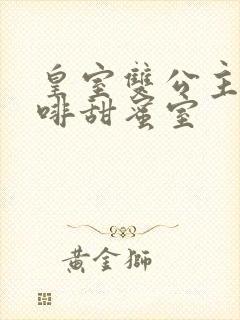 皇室雙公主
啡甜蜜室
黃金獅